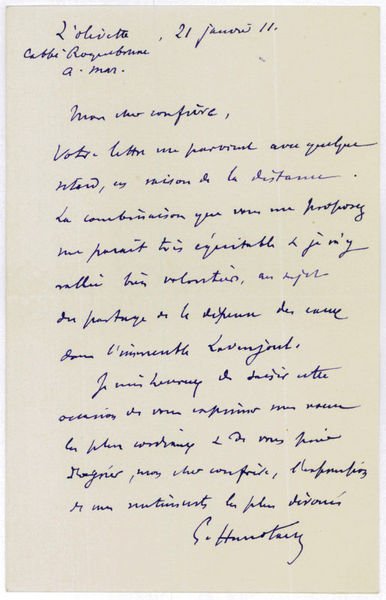 L'olivette, 21 janvier 11.
Cabbé-Roquebrune
A. Mar.
Mon cher confrère,
Votre lettre me parvient avec quelque
retard, en raison de la distance.
La combinaison que vous me proposez
me paraît très équitable & je m'y
rallie très volontiers, au sujet
du partage de la dépense des eaux
dans l'immeuble Lovenjoul.
Je suis heureux de saisir cette
occasion de vous exprimer mes vœux
les plus cordiaux & de vous prier
d'agréer, mon cher confrère, l'expression
de mes sentiments les plus dévoués
G. Hanotaux